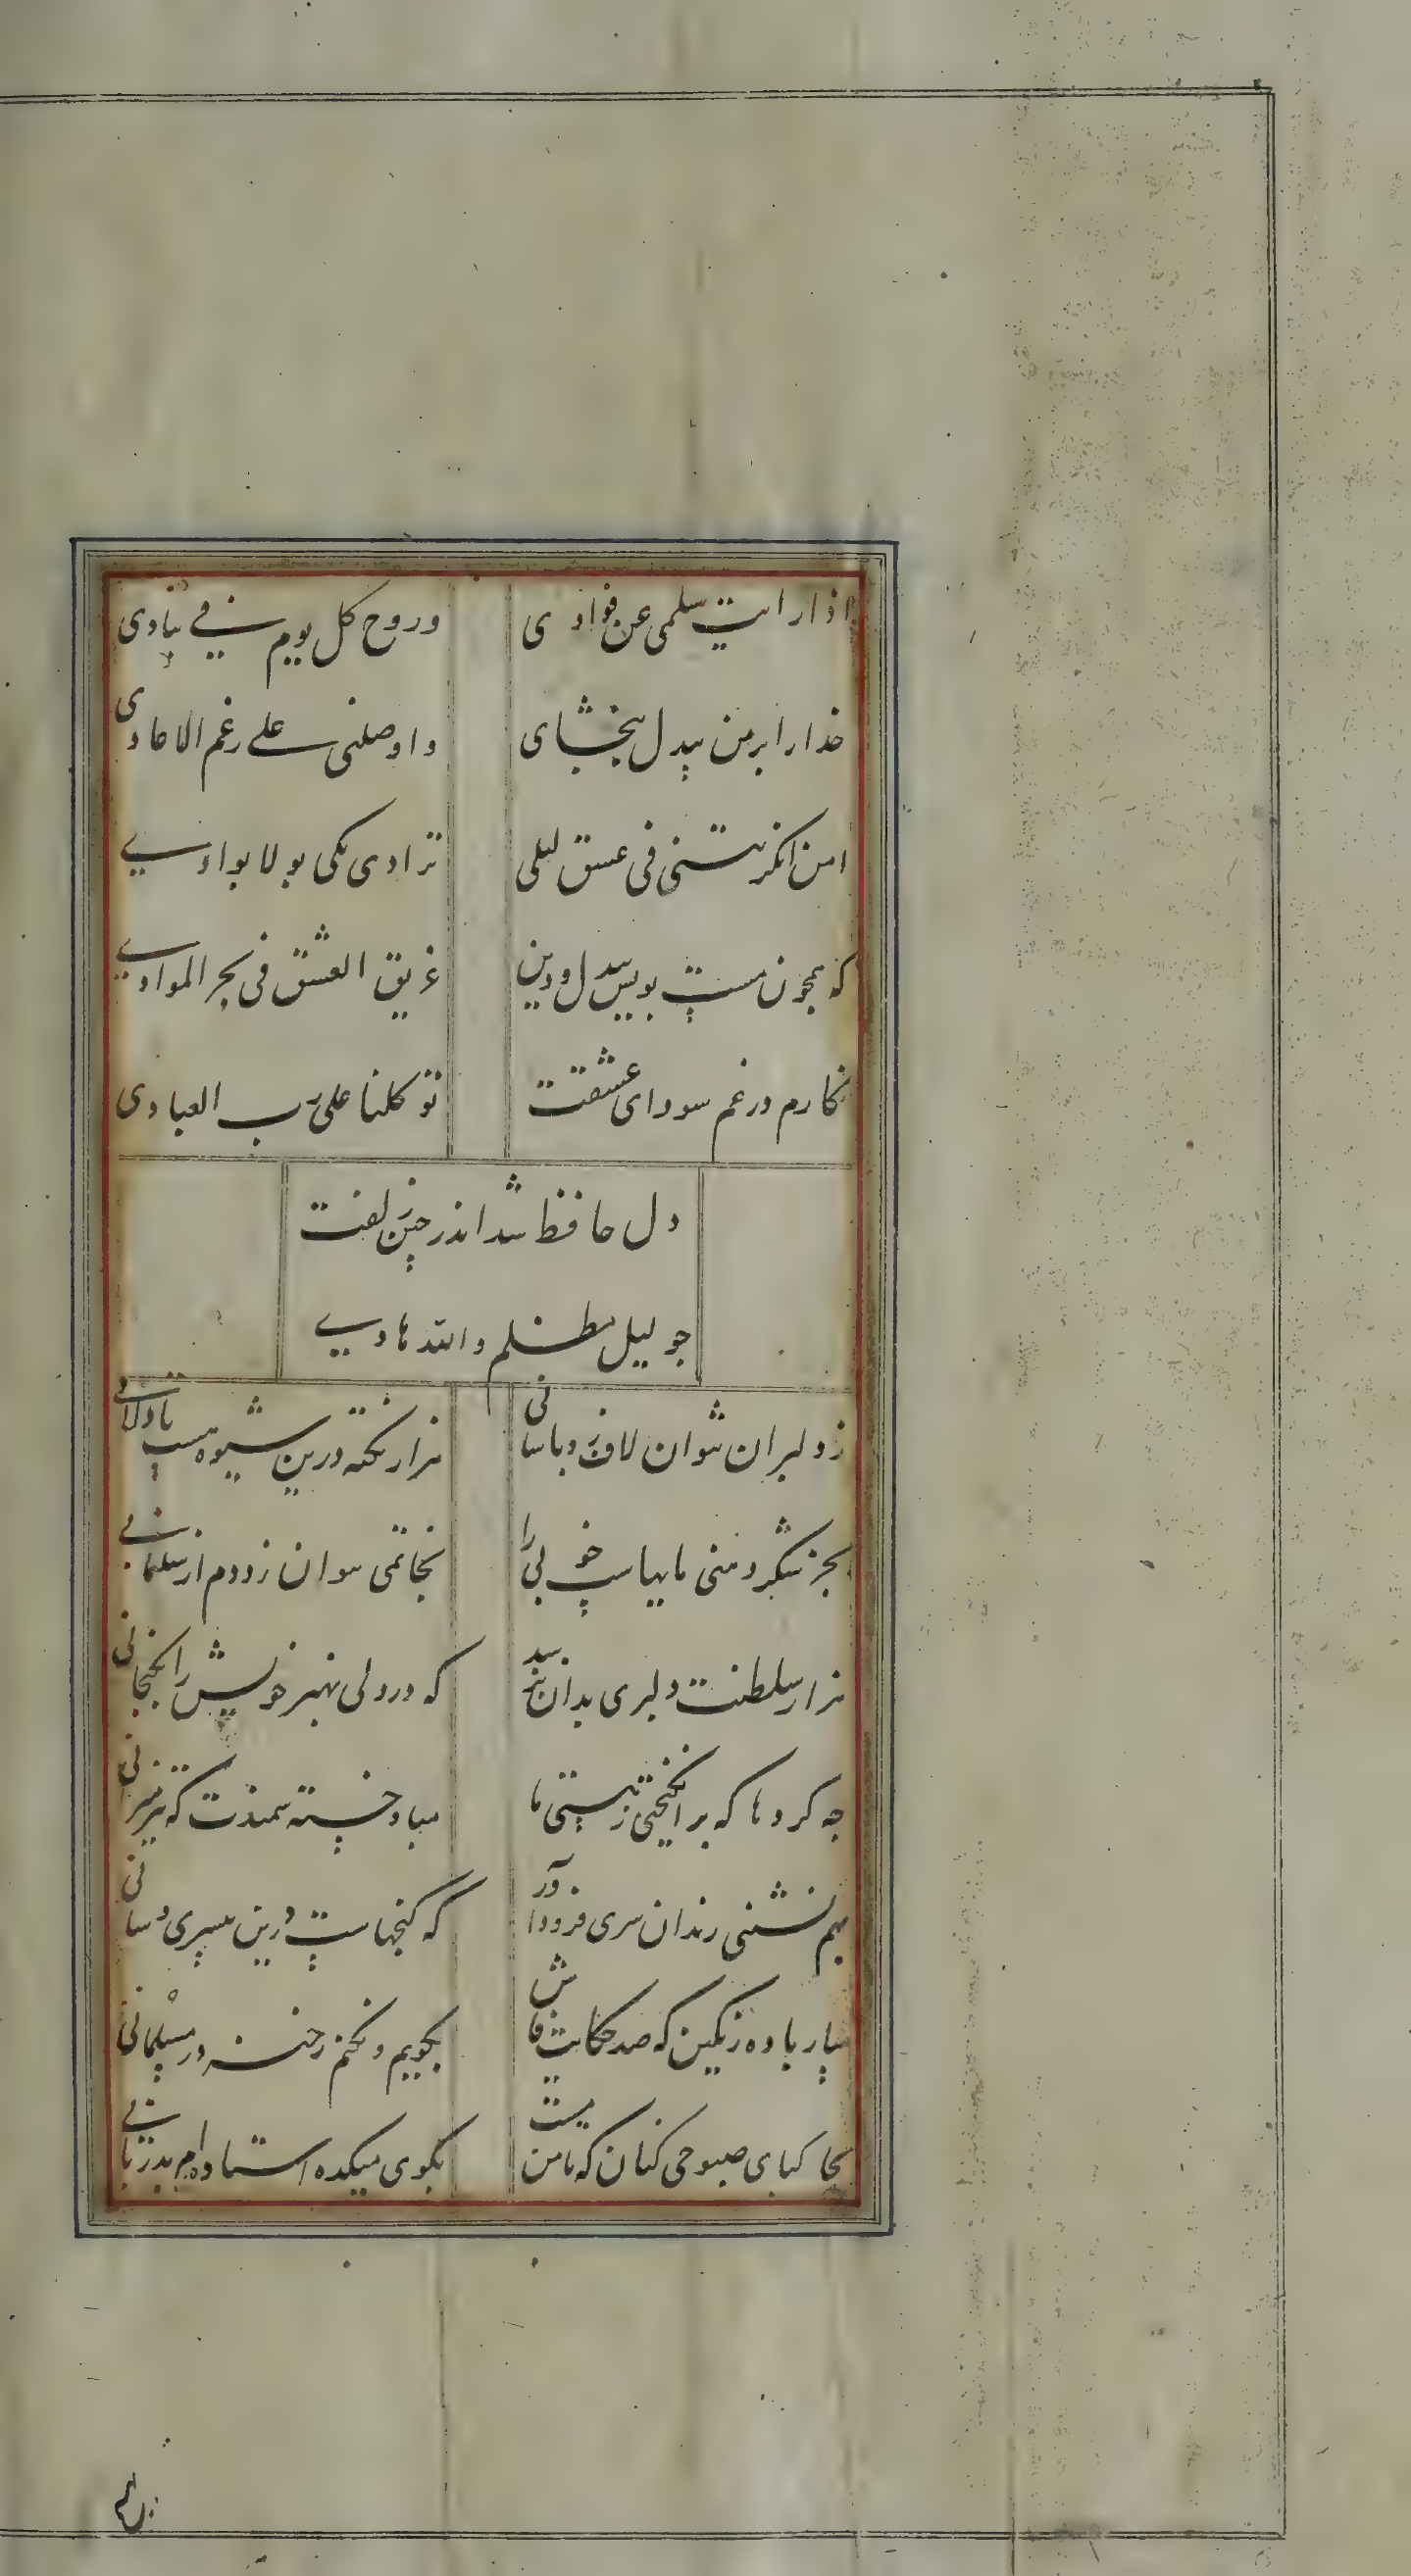 اذا رایت سلمی عن فوادی
وروح کل یوم فی ینادی
خدارا بر من بیدل ببخشای
و اوصلنی علی رغم الاعادی
امن انکرتنی فی عشق لیلی
تزادی نکی بو لا بوادی
که همچون مست بویس دل و دین
غریق العشق فی بحر الموادی
نکارم در غم سودای عشقت
توکلنا علی رب العبادی
دل حافظ شد اندر چین زلفت
جو لیل مظلم والله هادی
ز دلبران نتوان لاف زد باسانی
هزار نکته درین شیوه هست تا دانی
بجز شکر دهنی مایهاست خوبی را
بخاتمی نتوان زد دم از سلیمانی
هزار سلطنت دلبری بدان نرسد
که در دلی بهنر خویش را بکنجانی
چه کردها که برانکیختی ز هستی ما
مباد خسته سمندت که تیز میرانی
بهم نشنی رندان سری فرود آور
که کنجهاست درین بیسری و سامانی
بیار باده رنکین که صد حکایت فاش
بکویم و نکنم رخنه در مسلمانی
بخاکپای صبوحی کنان که تا من مست
بکوی میکده استاده‌ام بدربانی